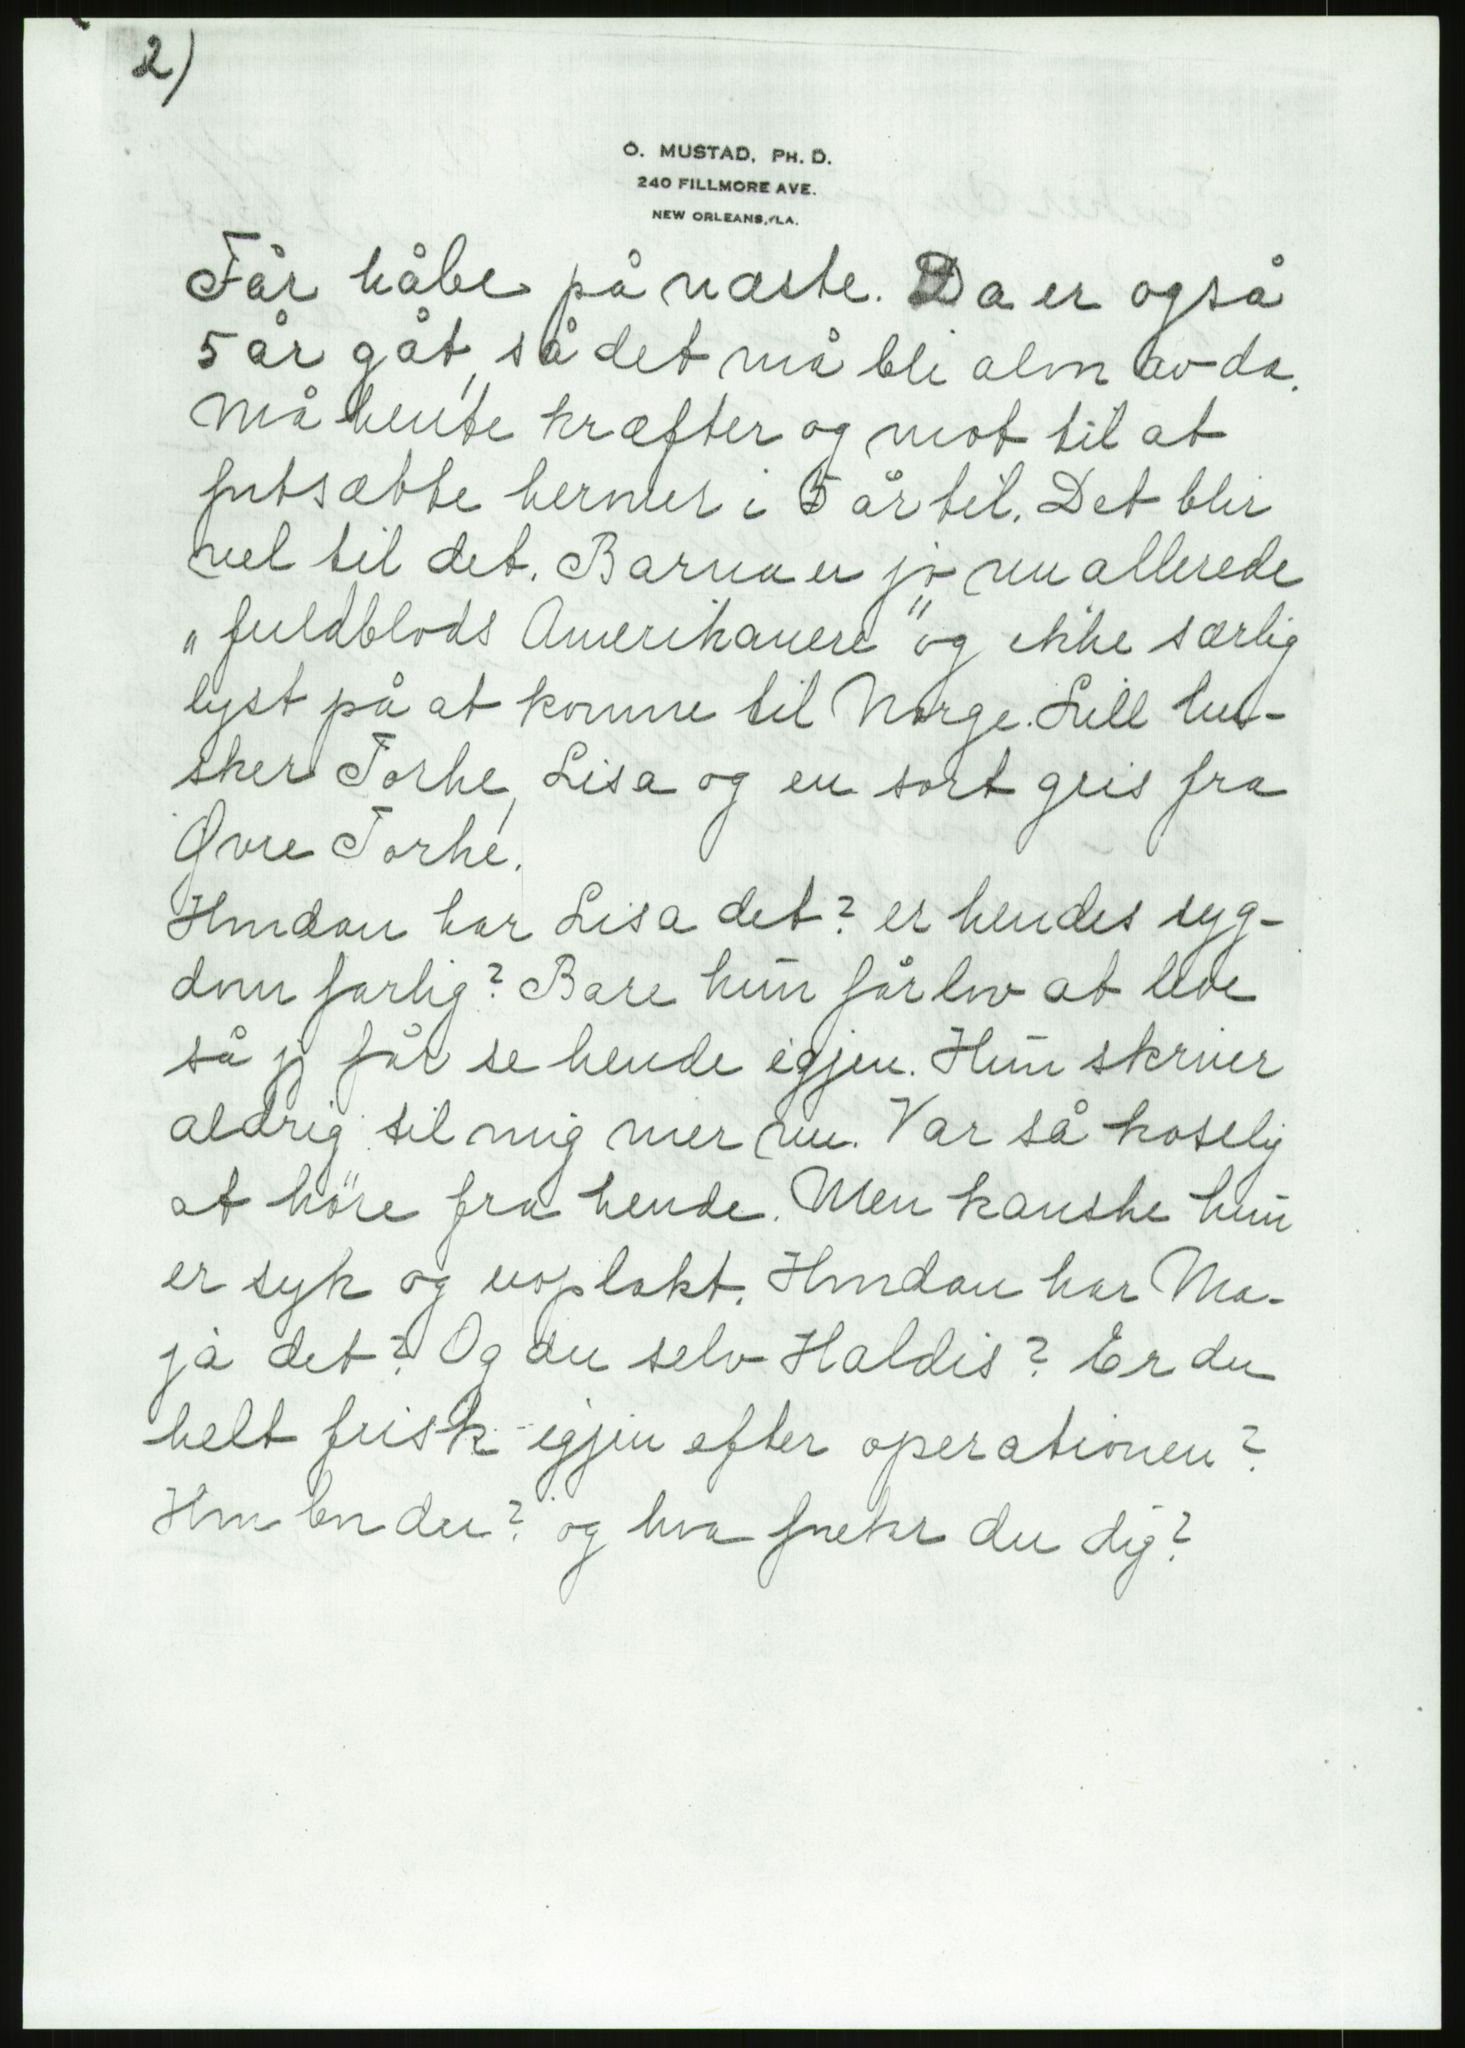 2)
O. MUSTAD, PH. D.
240 FILLMORE AVE.
NEW ORLEANS, LA.
Får håbe på næste. Da er også
5 år gåt, så det må bli alvor av da.
Må hente kræfter og mot til at
fortsætte hernér i 5 år til. Det blir
vel til det. Barna er jo nu allerede
„fuldblods Amerikanere" og ikke særlig
lyst på at komme til Norge. Lill hu-
sker Torhe, Lisa og en sort gris fra
Øvre Torhe.
Hvordan har Lisa det? er hendes syg-
dom farlig? Bare hun får lov at leve
så jeg får se hende igjen. Hun skriver
aldrig til mig mer nu. Var så koselig
at höre fra hende. Men kanske hun
er syk og uoplakt. Hvordan har Ma-
ja det? Og du selv Haldis? Er du
helt frisk igjen efter operationen?
Hvor bor du? og hva foretar du dig?